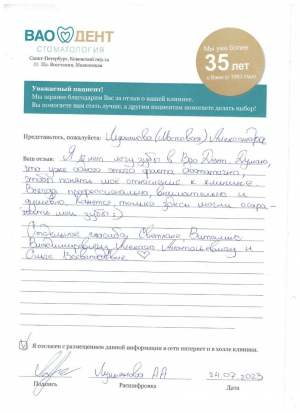 ВАО ДЕНТ
СТОМАТОЛОГИЯ
Санкт-Петербург, Ковенский пер.14
Пл. Восстания, Маяковская
Мы уже более
35 лет
с Вами (с 1983 года)
Уважаемый пациент!
Мы заранее благодарим Вас за отзыв о нашей клинике.
Вы поможете нам стать лучше, а другим пациентам помогаете делать выбор!
Представьтесь, пожалуйста: Александра
Ваш отзыв: Я лет лечу зубы в Вао Дент. Думаю,
что уже одного этого факта достаточно,
чтобы понять моё отношение к клинике.
Всегда профессионально, внимательно и
душевно. Кажется, только здесь могли сохра-
нить мои зубы :)
Отдельное спасибо Светлане, Виталию
Владимировичу, Анатольевичу и
Ольге
Я согласен с размещением данной информации в сети интернет и в холле клиники.
АА 24.07.2023
Подпись Расшифровка Дата